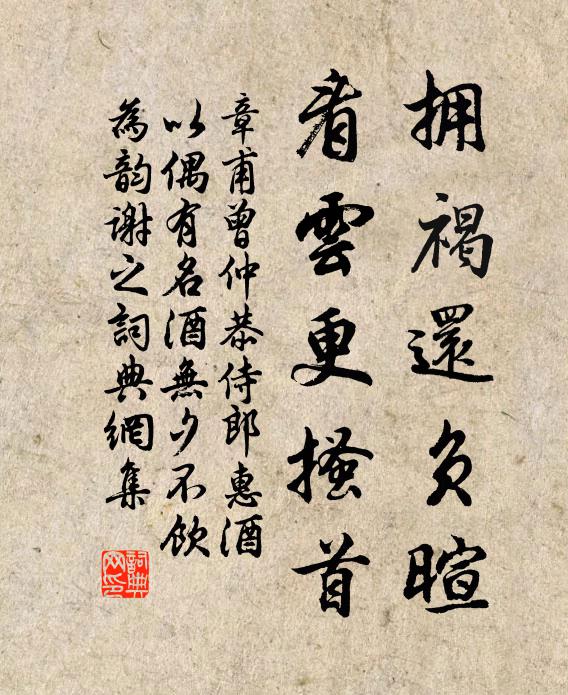 拥褐還负暄
看雲更搔首
章甫曾仲恭侍郎惠酒
以偶有名酒無夕不飲
為韵谢之詞典網集
詞典網印